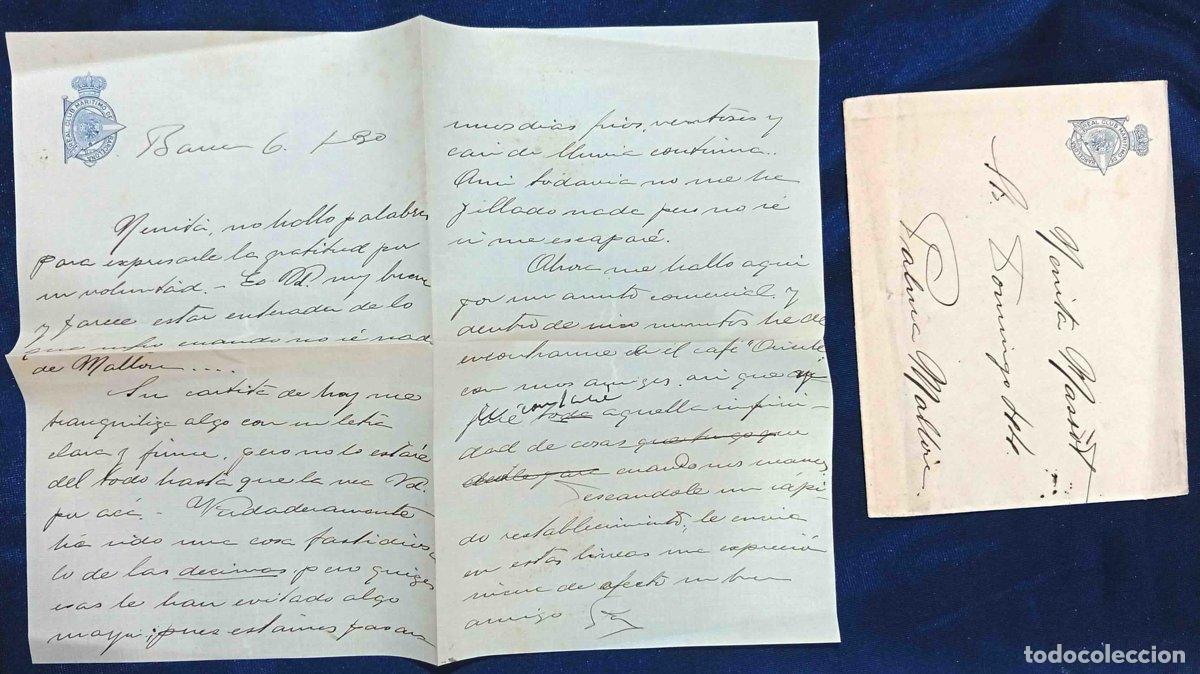 REAL CLUB MARITIMO DE BARCELONA
6.
Nenita, no hallo palabras
para expresarle la gratitud por
su voluntad.- Es Vd. muy buena
y parece estar enterada de lo
que sufro cuando no sé nada
de Mallorca....
Su cartita de hoy me
tranquiliza algo con su letra
clara y firme, pero no lo estaré
del todo hasta que la vea Vd.
por acá.- Verdaderamente
ha sido una cosa fastidiosa
lo de las decimas, pero quizás
esas le han evitado algo
mayor; pues estamos pasando
unos dias frios, ventosos y
casi de lluvia continua.
A mi todavia no me ha
pillado nada pero no sé
si me escaparé.
Ahora me hallo aqui
por un asunto comercial y
dentro de unos minutos he de
encontrarme en el café "Oriente"
con unos amigos, asi que
aquella infini-
dad de cosas que tengo que
cuando nos veamos
Deseandole un rápi-
do restablecimiento, le envia
en estas lineas una expresión
de afecto su buen
amigo
REAL CLUB MARITIMO DE BARCELONA
Nenita Massot
Sto. Domingo
Palma Mallorca.
todocoleccion